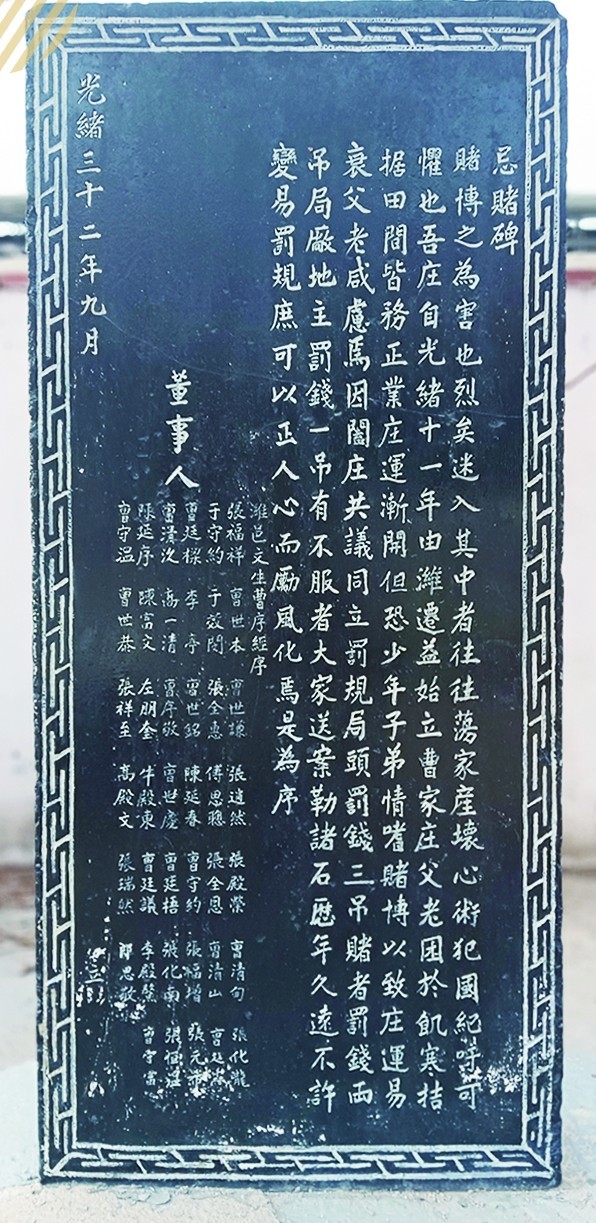 忌賭碑
賭博之為害也烈矣迷入其中者往往蕩家產壞心術犯國紀吁可
懼也吾庄自光緒十一年由濰遷益始立曹家庄父老困於飢寒拮
据田間皆務正業庄運漸開但恐少年子弟情嗜賭博以致庄運易
衰父老咸慮焉因闔庄共議同立罰規局頭罰錢三吊賭者罰錢兩
吊局廠地主罰錢一吊有不服者大家送案勒諸石歷年久遠不許
變易罰規庶可以正人心而勵風化焉是為序
濰邑文生曹序經序
董事人
張福祥 曹世本 曹世謙 張遒然 張殿榮 曹清旬 張化龍
于守約 于效閔 張全惠 傅思聰 張全恩 曹清山
曹廷樑 李亭 曹世銘 陳延春 曹守約 張福增 張元
曹清汶 高一清 曹序敬 曹世慶 曹廷梧 張化南 張恒
陳延序 陳富文 左朋奎 牛殿東 曹廷議 李殿鰲 曹守富
曹守溫 曹世恭 張祥至 高殿文 張瑞然 思敬
光緒三十二年九月